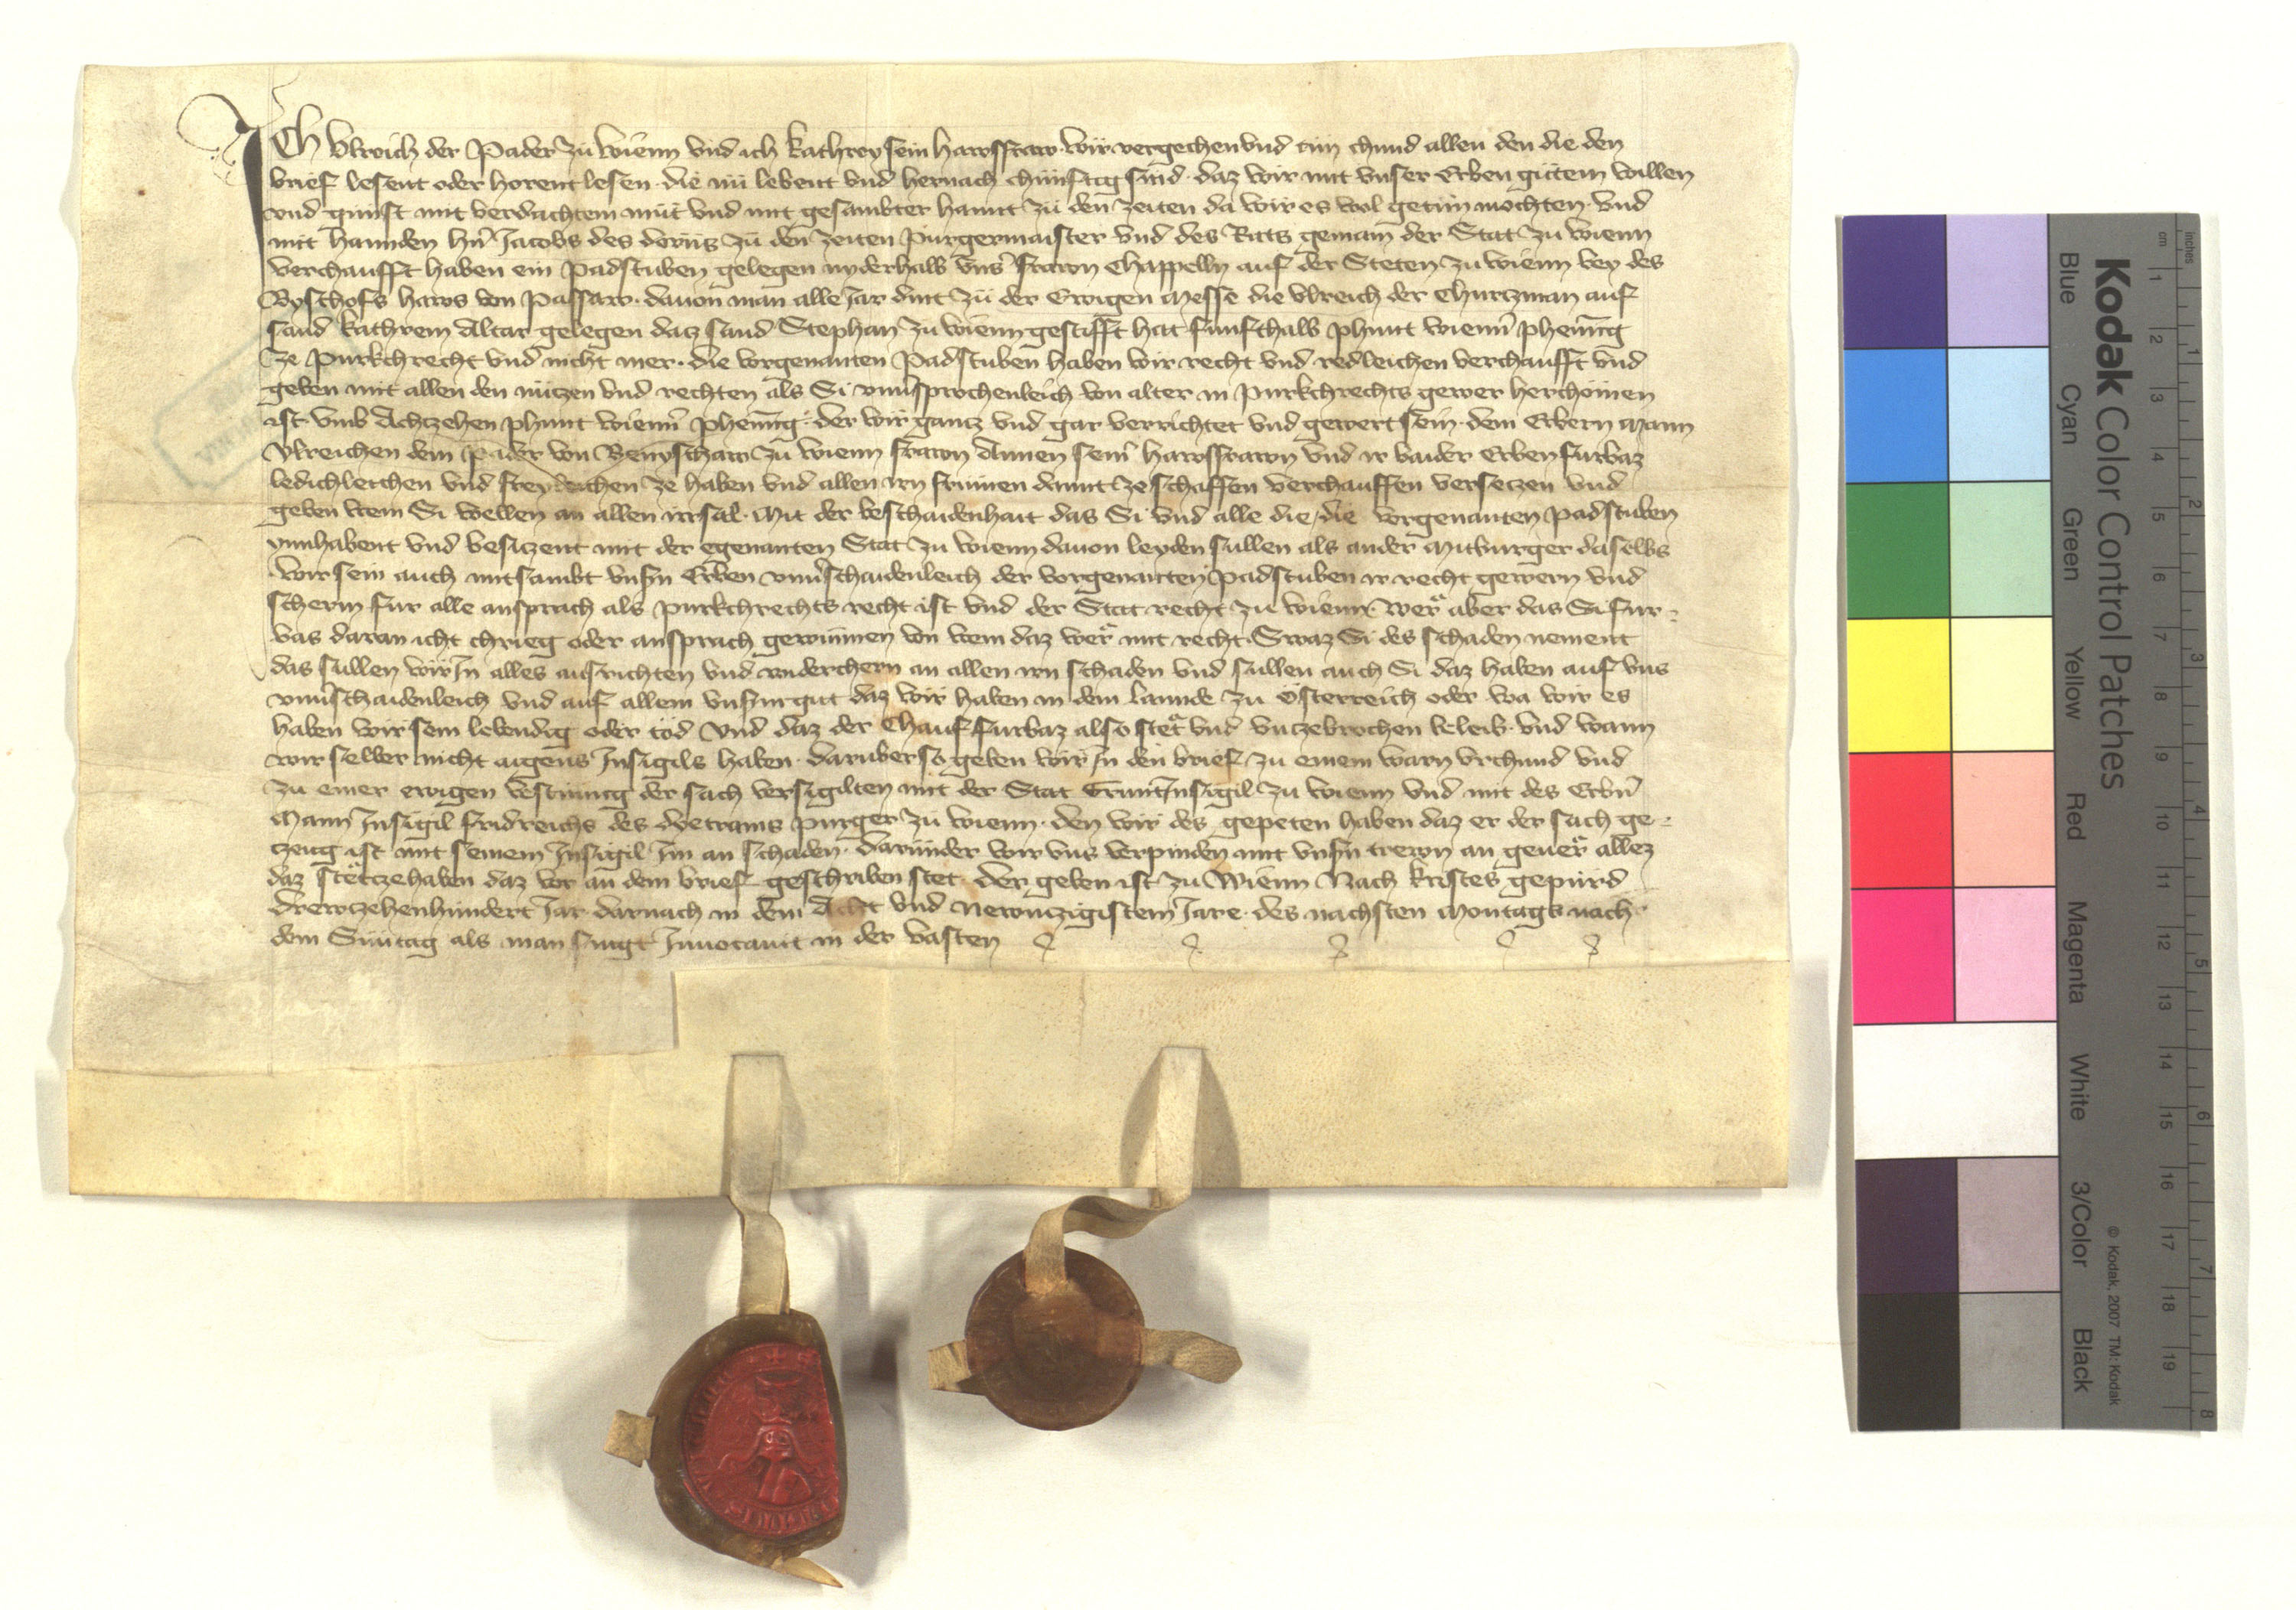 ICH Ulreich der Pader zu Wienn und ich Kathrey sein hawsfraw wir vergechen und tun chund allen den die den
brief lesent oder horent lesen die nu lebent und hernach chunftig sind daz wir mit unser Erben gutem willen
und gunst mit verdachtem mut und mit gesambter hannt zu den zeiten da wir es wol getun mochten und
mit hannden hern Jacobs des dorns zu den zeiten Purgermaister und des Rats gemain der Stat zu Wienn
verchaufft haben ein Padstuben gelegen nyderhalb uns frawn Chappelln auf der Steten zu Wienn bey des
Byschofs haws von Passaw davon man alle Jar dint zu der Ewigen Messe die Ulreich der Churczman auf
sand Kathrein Altar gelegen daz sand Stephan zu Wienn gestifft hat funfthalb phunt Wienn phening
ze purkchrecht und nicht mer die vorgenanten Padstuben haben wir recht und redleichen verchaufft und
geben mit allen den nutzen und rechten als Si unversprochenleich von alter in purkchrechts gewer herchomen
ist umb Achtzehen phunt Wienn phening der wir gantz und gar verrichtet und gewert sein dem Erbern Mann
Ulreichen dem Pader von zu Wienn frawn Annen seiner hawsfrawn und ir baider Erben furbaz
ledichleichen und freyleichen ze haben und allen irn frumen damit ze schaffen verchauffen versetzen und
geben wem Si wellen an allen irrsal Mit der beschaidenhait das Si und alle die, die vorgenanten Padstuben
innhabent und besitzent mit der egenanten Stat zu Wienn davon leyden sullen als ander Mitburger daselbs
wir sein auch mitsambt unsern Erben unverschaidenleich der vorgenanten Padstuben ir recht gewern und
scherm fur alle ansprach als purkchrechts recht ist und der Stat recht zu Wienn. Wer aber das Si fur-
bas daran icht chrieg oder ansprach gewunnen von wem daz wer mit recht Swaz Si des schaden nement
das sullen wir In alles ausrichten und widerchern an allen irn schaden und sullen auch Si daz haben auf uns
unverschaidenleich und auf allem unserm gut daz wir haben in dem Lannde zu Osterreich oder wa wir es
haben wir sein lebendig oder tod und daz der Chauf furbaz also stet und unzebrochen beleib und wann
wir selber nicht aigens Insigils haben daruber so geben wir In den brief zu einem warn urchund und
zu einer ewigen vestnung der sach versigilten mit der Stat Gruntinsigil zu Wienn und mit des Erbern
Mann Insigil Fridreichs des dyetrams purger zu Wienn den wir des gepeten haben daz er der sach ge-
zeug ist mit seinem Insigil Im an schaden darunder wir uns verpinden mit unsern trewn an gever allez
daz stet ze haben daz vor an dem brief geschriben stet der geben ist zu Wienn Nach Kristes gepurd
drewtzehenhundert Jar darnach in dem Acht und Newntzigistem Jare des nachsten Montags nach
dem Suntag als man singt Invocavit in der vasten
Kodak Color Control Patches
Blue Cyan Green Yellow Red Magenta White 3/Color Black
© Kodak, 2007 TM: Kodak
cm 1 2 3 4 5 6 7 8 9 10 11 12 13 14 15 16 17 18 19
inches 1 2 3 4 5 6 7 8